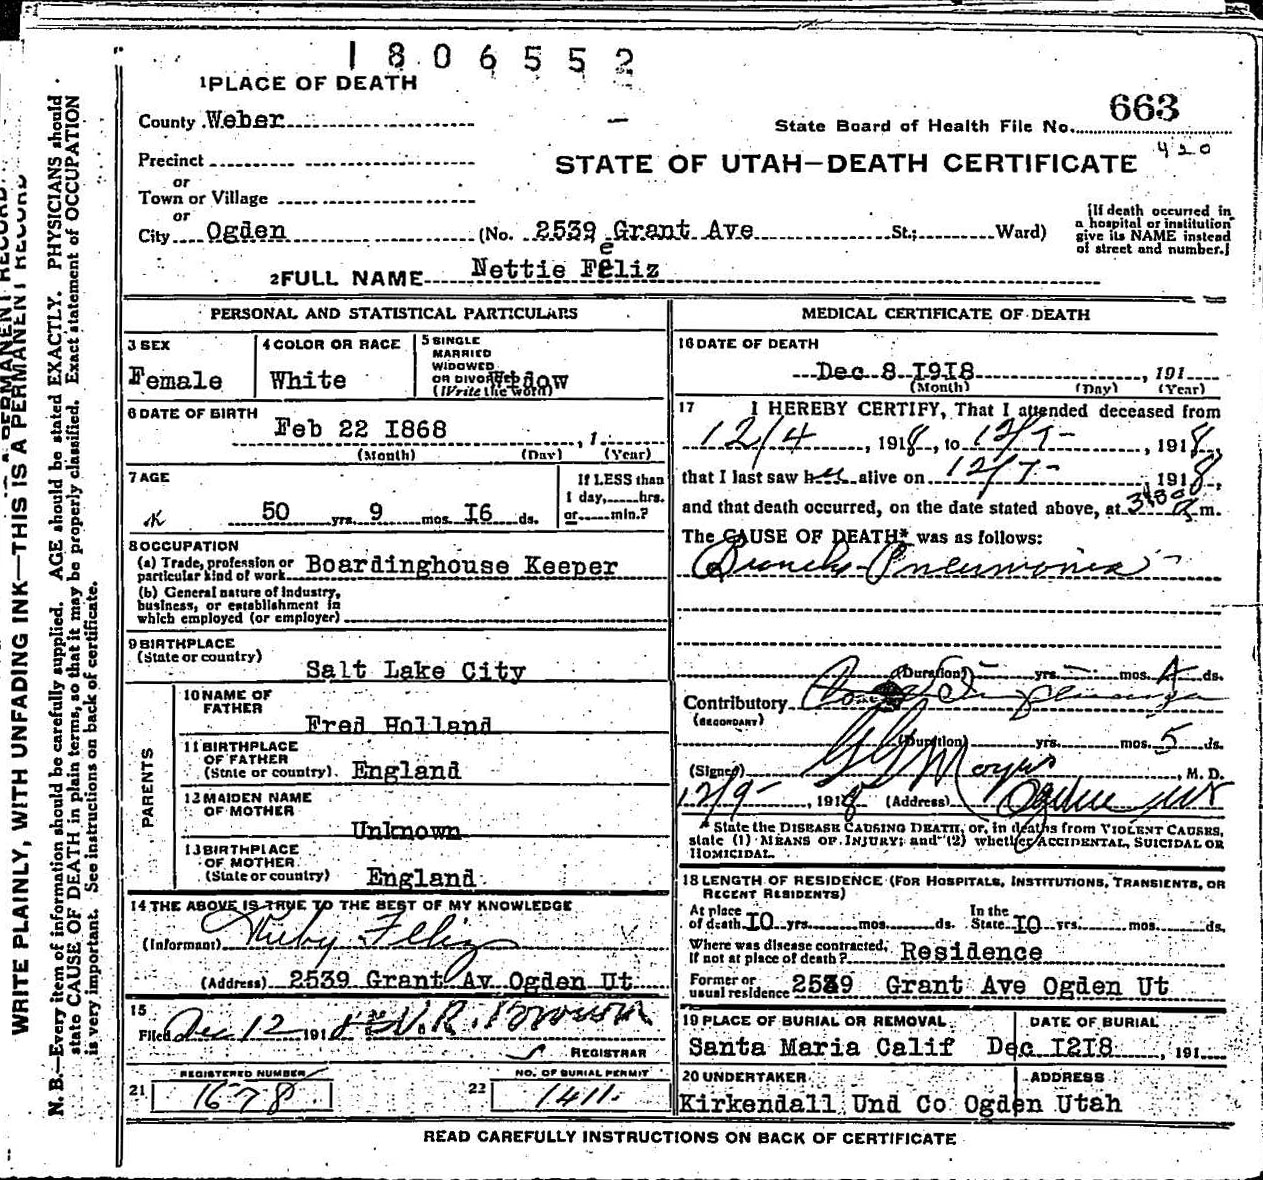 1806552
1 PLACE OF DEATH
663
County Weber
State Board of Health File No.
Precinct
STATE OF UTAH—DEATH CERTIFICATE
420
or
Town or Village
or
City Ogden (No. 2539 Grant Ave St.; Ward)
[If death occurred in
a hospital or institution
give its NAME instead
of street and number.]
e
2 FULL NAME Nettie Feliz
PERSONAL AND STATISTICAL PARTICULARS
3 SEX
Female
4 COLOR OR RACE
White
5 SINGLE
MARRIED
WIDOWED
OR DIVORCED
(Write the word)
Widow
6 DATE OF BIRTH
Feb 22 I868 , 1
(Month) (Day) (Year)
7 AGE
50 yrs. 9 mos. I6 ds.
If LESS than
1 day, hrs.
or min.?
8 OCCUPATION
(a) Trade, profession or
particular kind of work Boardinghouse Keeper
(b) General nature of industry,
business, or establishment in
which employed (or employer)
9 BIRTHPLACE
(State or country)
Salt Lake City
PARENTS
10 NAME OF
FATHER
Fred Holland
11 BIRTHPLACE
OF FATHER
(State or country) England
12 MAIDEN NAME
OF MOTHER
Unknown
13 BIRTHPLACE
OF MOTHER
(State or country) England
14 THE ABOVE IS TRUE TO THE BEST OF MY KNOWLEDGE
(Informant) Ruby Feliz
(Address) 2539 Grant Av Ogden Ut
15
Filed Dec 12 1918
REGISTRAR
21 REGISTERED NUMBER
1678
22 NO. OF BURIAL PERMIT
1411
MEDICAL CERTIFICATE OF DEATH
16 DATE OF DEATH
Dec 8 I9I8 , 191
(Month) (Day) (Year)
17 I HEREBY CERTIFY, That I attended deceased from
12/4 , 1918, to 12/7- , 1918,
that I last saw her alive on 12/7- 1918,
and that death occurred, on the date stated above, at 3:30 a m.
The CAUSE OF DEATH* was as follows:
Broncho-Pneumonia
(Duration) yrs. mos. 4 ds.
Contributory Influenza
(SECONDARY)
(Duration) yrs. mos. 5 ds.
(Signed) , M. D.
12/9- , 1918 (Address) Ogden Ut
* State the DISEASE CAUSING DEATH, or, in deaths from VIOLENT CAUSES,
state (1) MEANS OF INJURY; and (2) whether ACCIDENTAL, SUICIDAL OR
HOMICIDAL.
18 LENGTH OF RESIDENCE (FOR HOSPITALS, INSTITUTIONS, TRANSIENTS, OR
RECENT RESIDENTS)
At place
of death I0 yrs. mos. ds. In the
State I0 yrs. mos. ds.
Where was disease contracted,
If not at place of death? Residence
Former or
usual residence 2539 Grant Ave Ogden Ut
19 PLACE OF BURIAL OR REMOVAL
Santa Maria Calif
DATE OF BURIAL
Dec I2I8 , 191
20 UNDERTAKER
Kirkendall Und Co
ADDRESS
Ogden Utah
READ CAREFULLY INSTRUCTIONS ON BACK OF CERTIFICATE
WRITE PLAINLY, WITH UNFADING INK—THIS IS A PERMANENT RECORD
N. B.—Every item of information should be carefully supplied. AGE should be stated EXACTLY. PHYSICIANS should
state CAUSE OF DEATH in plain terms, so that it may be properly classified. Exact statement of OCCUPATION
is very important. See instructions on back of certificate.